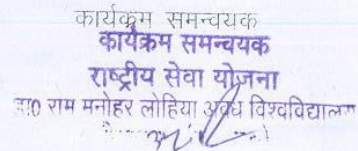 कार्यक्रम समन्वयक
कार्यक्रम समन्वयक
राष्ट्रीय सेवा योजना
डा0 राम मनोहर लोहिया अवध विश्वविद्यालय